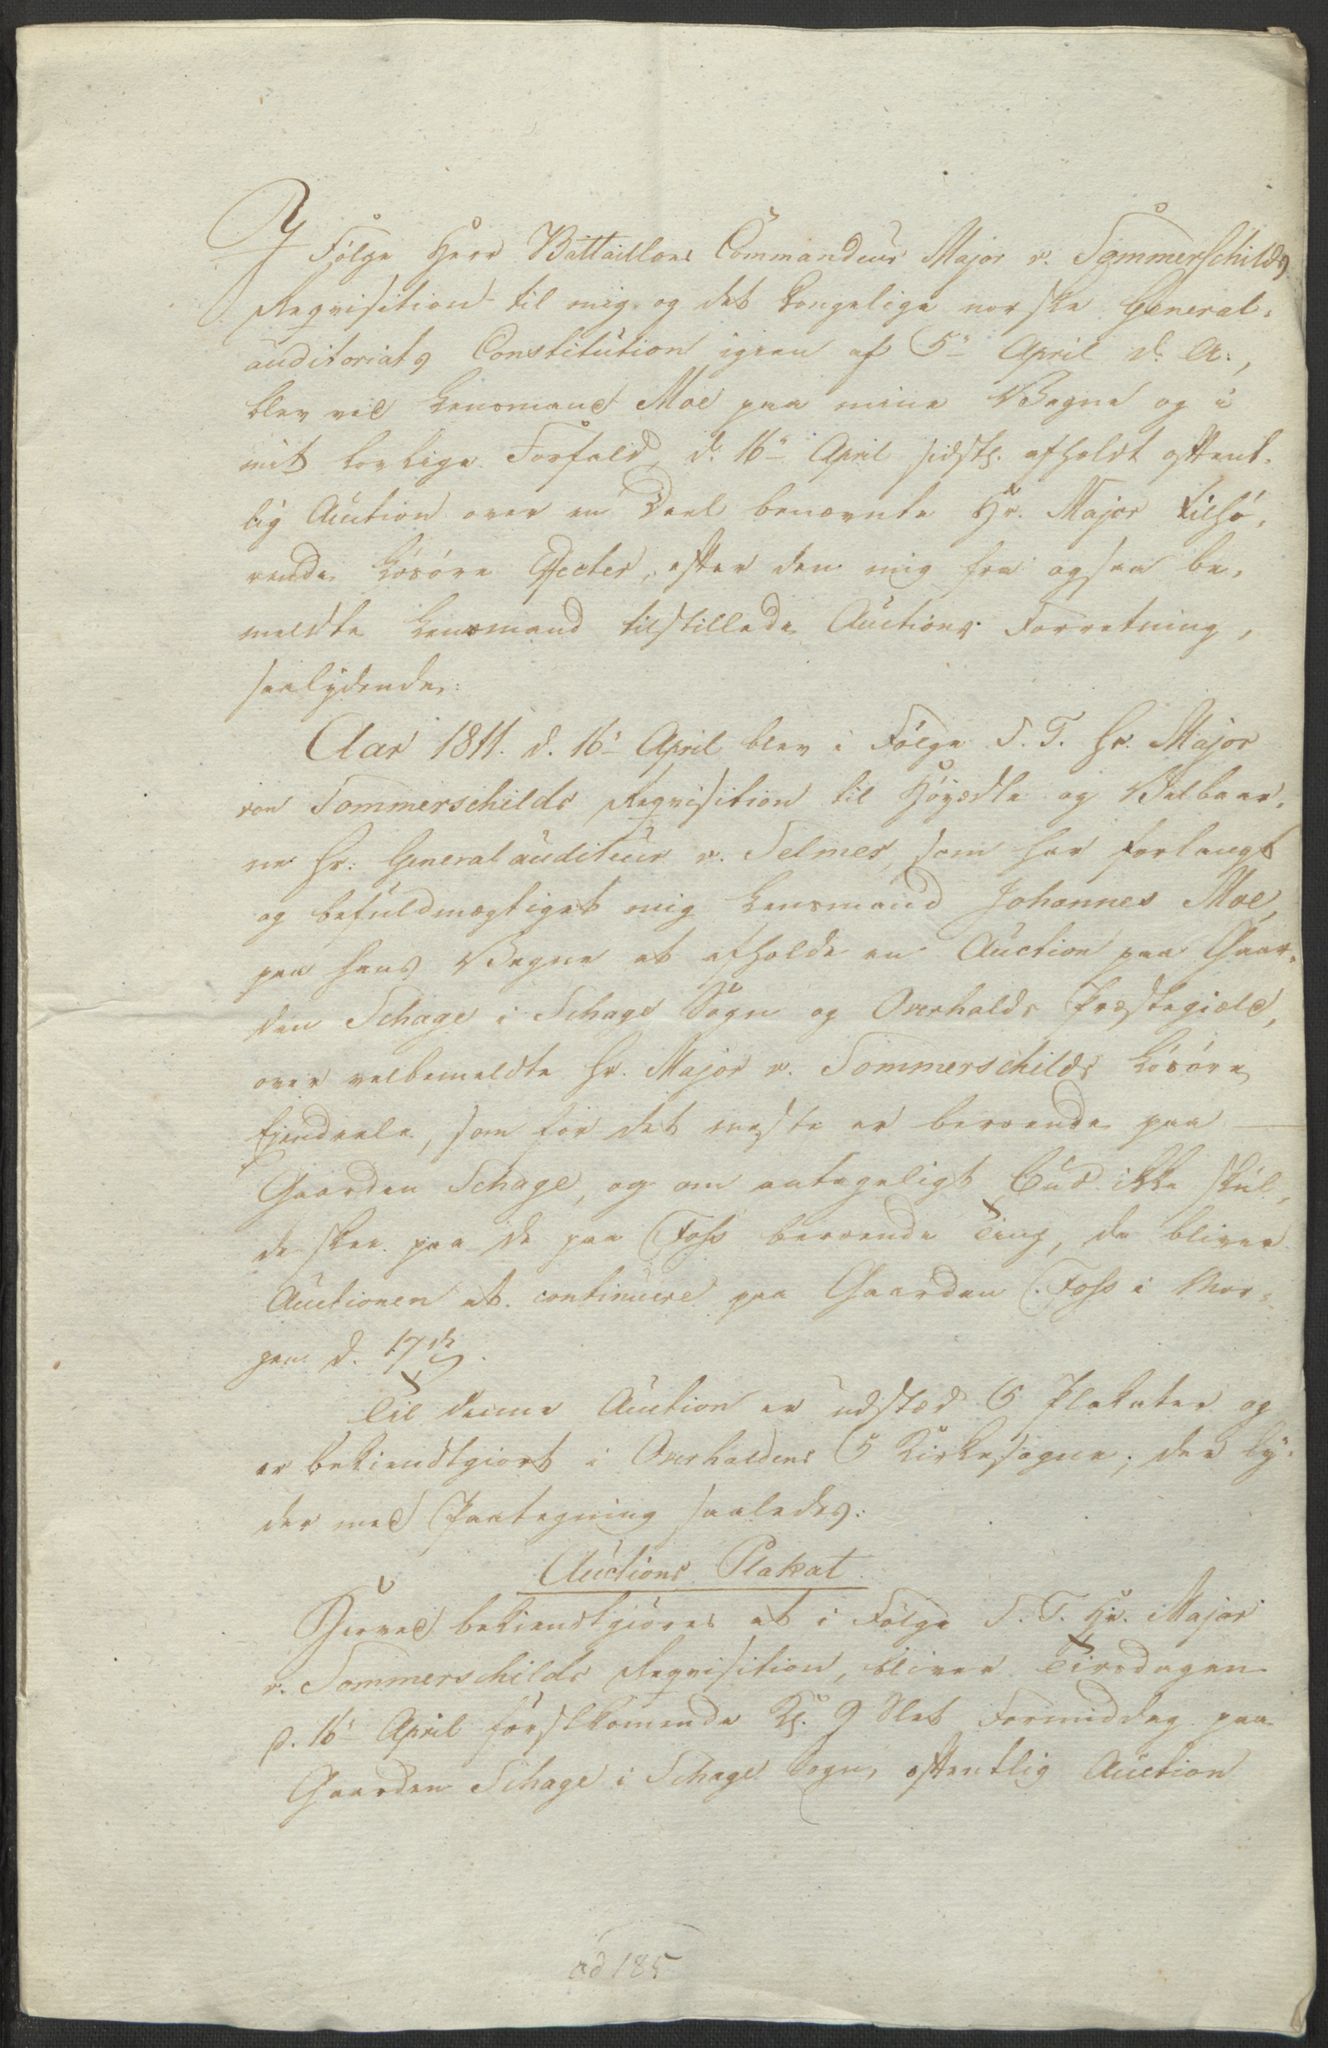 I Følge Herr Battaillons Commandeur Major v. Sommerschilds
Reqvisition til mig og det kongelige norske General-
auditoriats Constitution igien af 5te April d. A.,
blev ved Lensmand Moe paa mine Vegne og i
mit lovlige Forfald, d. 16de April sidstl. afholdt offent-
lig Auction over en Deel benævnte Hr. Major tilhø-
rende Løsøre Effecter, efter den mig fra ogsaa be-
meldte Lensmand tilstillede Auctions Forretning,
saalydende:
Aar 1811. d. 16de April blev i Følge S. T. Hr. Major
von Sommerschilds Reqvisition til Høyædle og Velbaar-
ne Hr. Generalauditeur v. Selmer, som har forlangt
og befuldmægtiget mig Lensmand Johannes Moe,
paa hans Vegne at afholde en Auction paa Gaar-
den Schage i Schage Sogn og Overhalds Præstegield,
over velbemeldte Hr. Major v. Sommerschilds Løsøre
Ejendeele, som for det meste er beroende paa
Gaarden Schage, og om antageligt Bud ikke skul-
de skee paa de paa Foss beroende Ting, da bliver
Auctionen at continuere paa Gaarden Foss i Mor-
gen d. 17de.
Til denne Auction er udstæd 5 Plakater og
er bekiendtgiort i Overhaldens 5 Kirkesogne, der ly-
der med Paategning saaledes:
Auctions Plakat
Herved bekiendtgiøres at i Følge S. T. Hr. Major
v. Sommerschilds Reqvisition, bliver Tirsdagen
d. 16de April førstkomende Kl. 9 Slet Formiddag paa
Gaarden Schage i Schage Sogn, offentlig Auction
ad 185